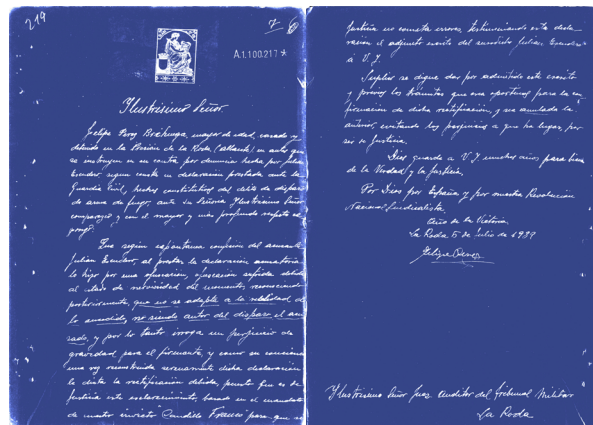 219
7
A1.100.217*
Ylustrisimo Señor
Felipe Perez mayor de edad, casado y
detenido en la Prision de La Roda (Albacete) en autos que
se instruyen en su contra por denuncia hecha por Julian
Escudero segun consta en declaración prestada ante la
Guardia Civil, hechos constitutivos del delito de disparo
de arma de fuego, ante su Señoria Ylustrisima Señor
comparezco y con el mayor y mas profundo respeto ex
pongo:
Que segun espontanea confesion del acusante
Julian Escudero, al prestar la declaración acusatoria
lo hizo por una ofuscación sufrida debido
al estado de nerviosidad del momento, reconociendo
posteriormente, que no se adapta a la realidad de
lo sucedido, no siendo autor del disparo, el acu
sado, y por lo tanto irroga un perjuicio de
gravedad para el firmante, y como en conciencia
una vez reconstruida serenamente dicha declaración
le dicta la rectificación debida, puesto que es de
justicia este esclarecimiento, basado en el mandato
de nuestro invicto Caudillo Franco para que no
Justicia no cometa errores, testimoniando esta decla-
racion el adjunto escrito del susodicho Julian Escudero
a V. I.
Suplico se digne dar por admitido este escrito
y previos los trámites que crea oportunos para la con
firmacion de dicha rectificación, y sea anulada la
anterior, evitando los perjuicios a que ha lugar, por
ser de Justicia.
Dios guarde a V. I. muchos años para bien
de la Verdad y la Justicia.
Por Dios, por España y por nuestra Revolución
Nacional Sindicalista.
Año de la Victoria.
La Roda 5 de Julio de 1939
Felipe Perez
Ylustrisimo Señor Juez Auditor del Tribunal Militar
La Roda